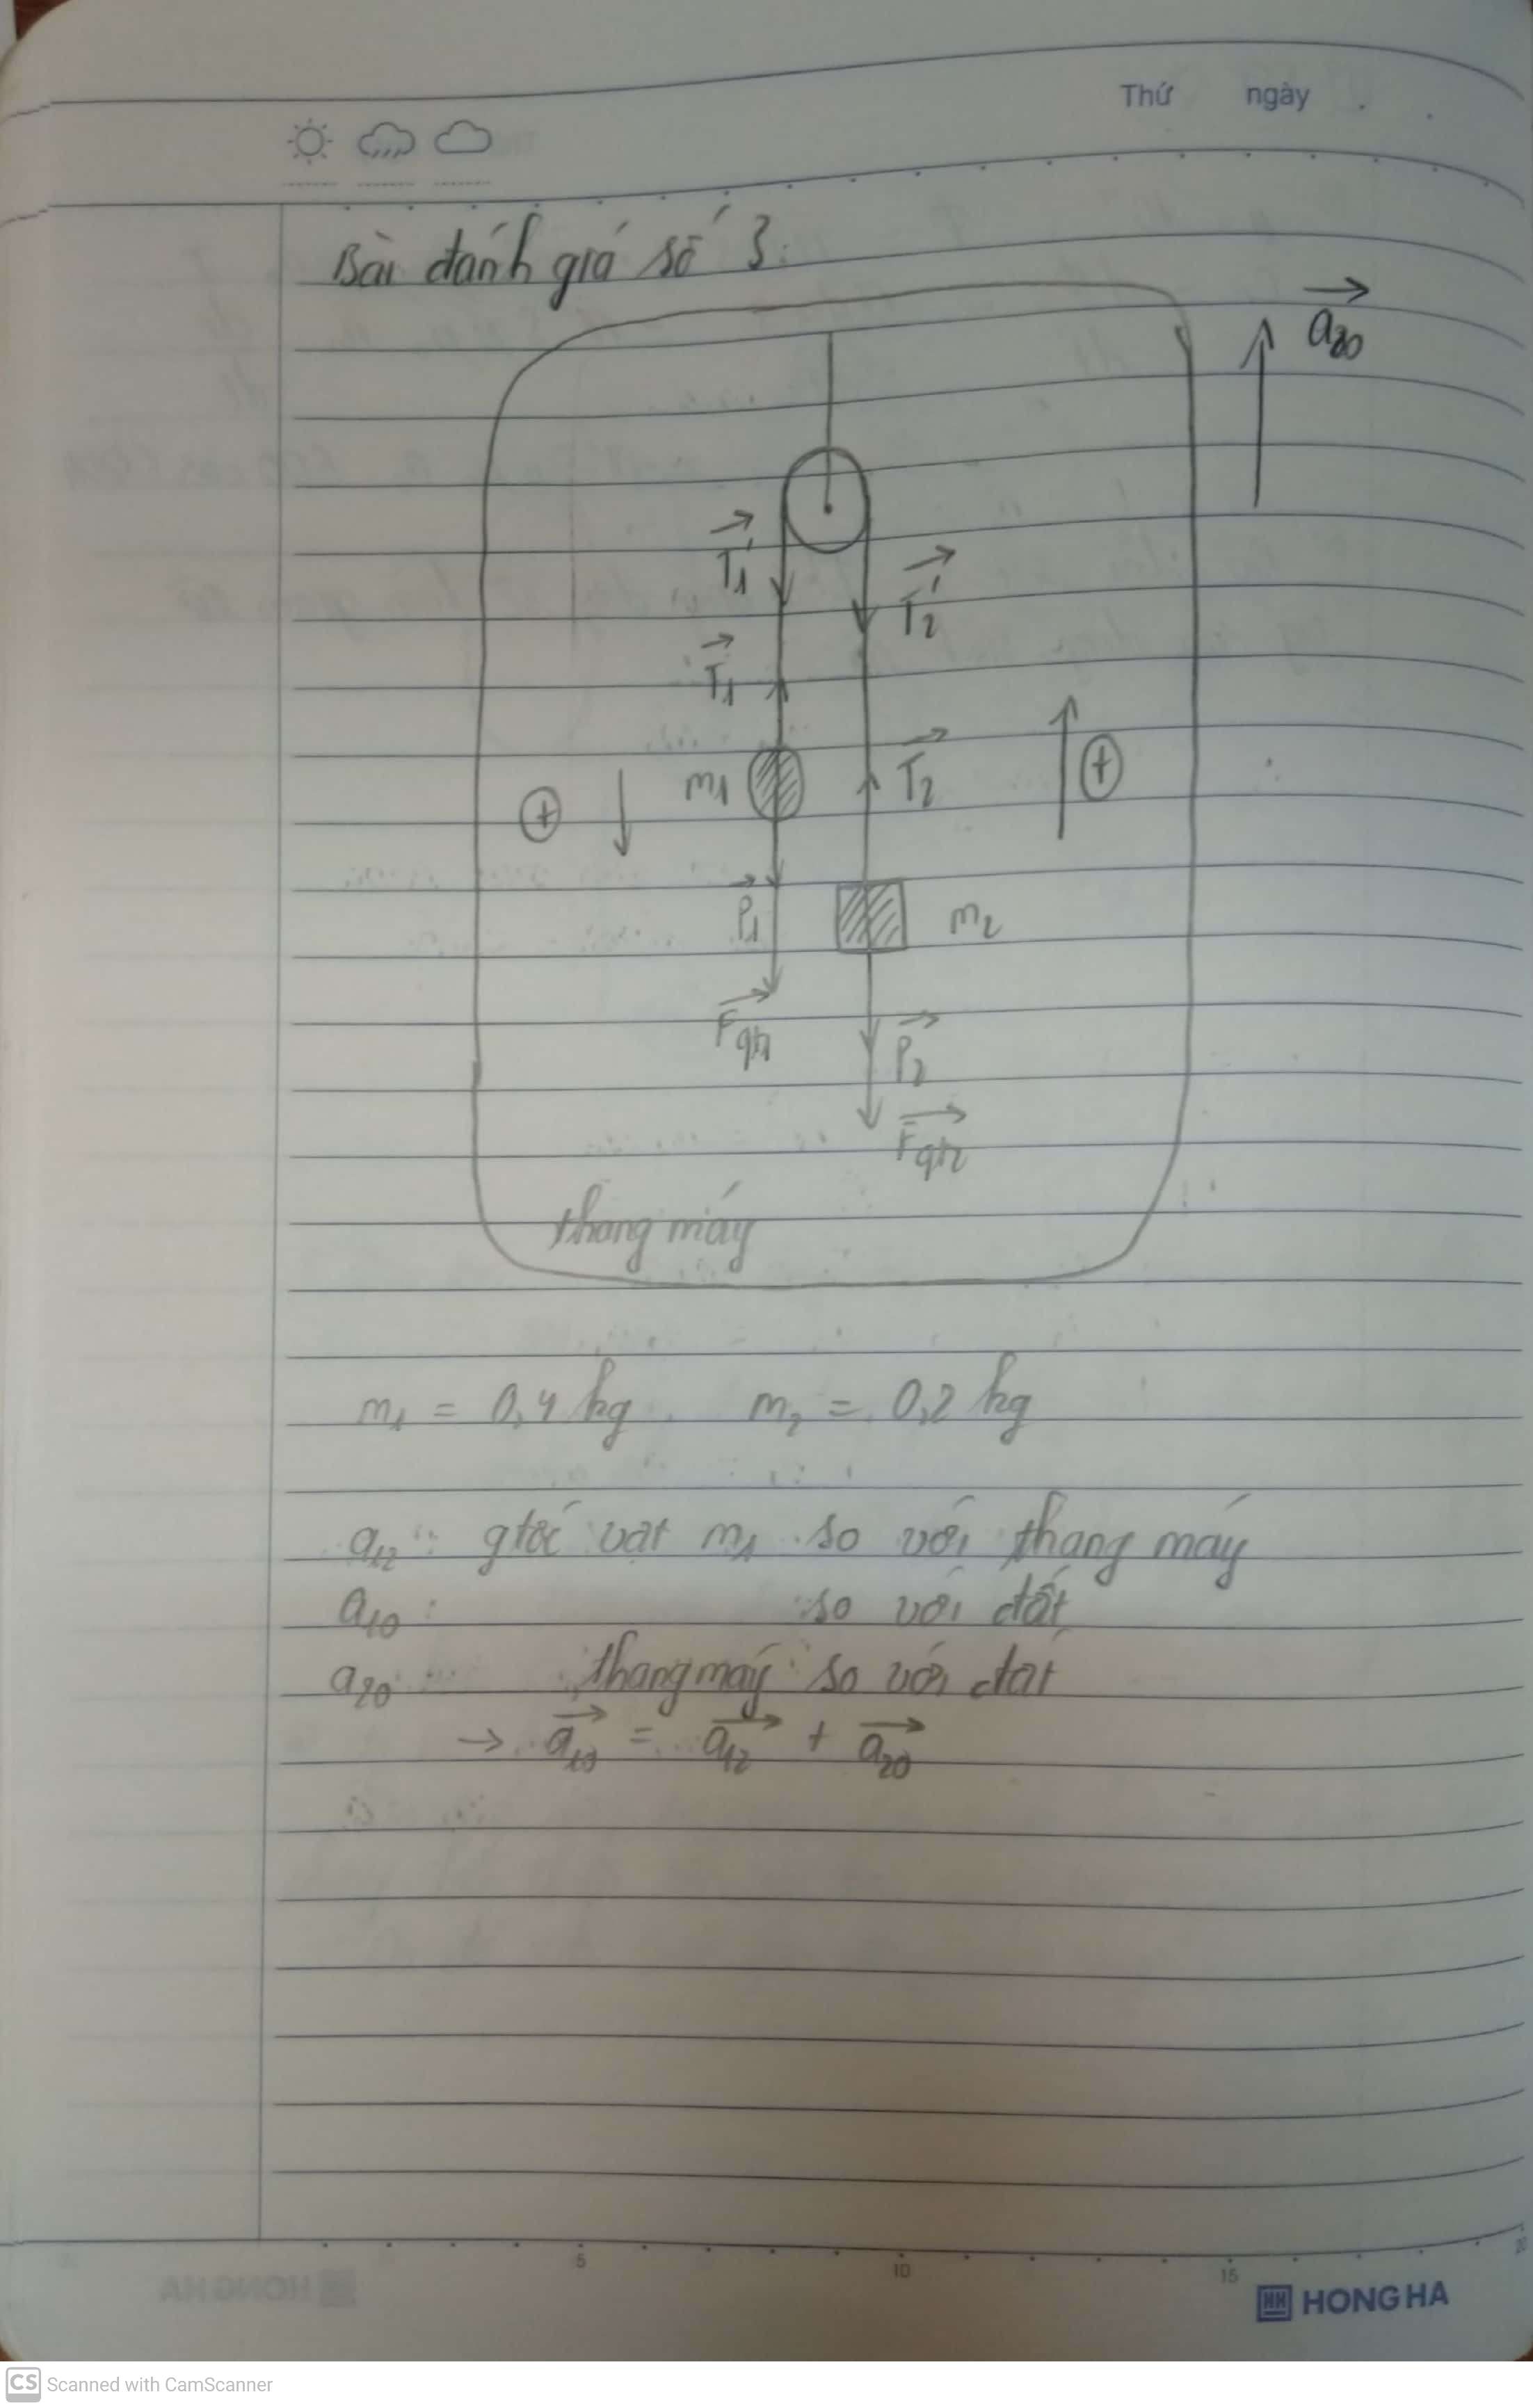 Thứ ngày . .
Bài đánh giá số 3:
a₂₀
T₁'
T₂'
T₁
m₁
T₂
+
+
P₁
m₂
Fqt₁
P₂
Fqt₂
thang máy
m₁ = 0,4 kg. m₂ = 0,2 kg
a₁₂ : gtốc vật m₁ so với thang máy
a₁₀ : so với đất
a₂₀ : thang máy so với đất
→ a₁₀ = a₁₂ + a₂₀
5 10 15
HONG HA
CS Scanned with CamScanner